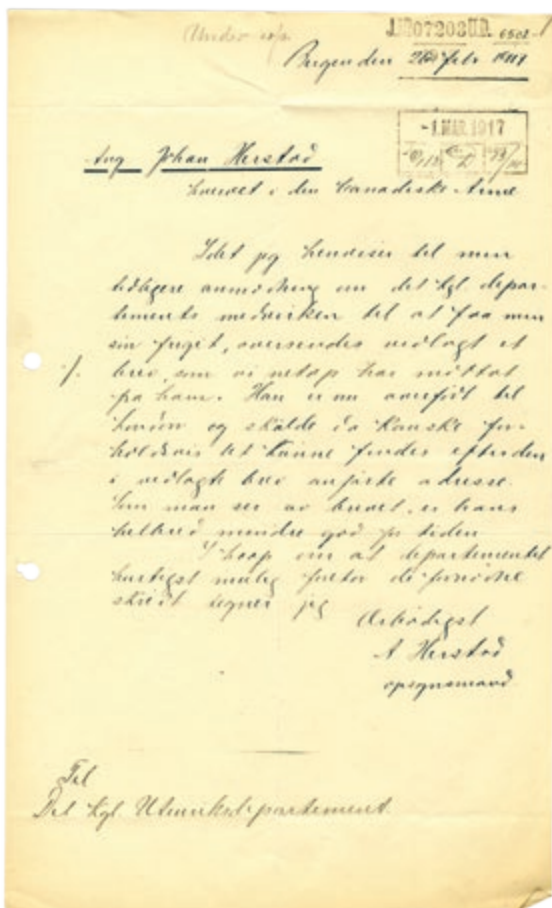 Under
J.No 07203 U.D. 6502
Bergen den 26de febr 1917
-1. MAR. 1917
Ang Johan Herstad
hvervet i den Canadiske Arme
Idet jeg henviser til min
tidligere anmodning om det kgl. depar-
tements medvirken til at faa min
søn frigit, oversendes vedlagt et
./. brev, som vi netop har mottat
fra ham. Han er nu overført til
London og skulde da kanske for-
holdsvis let kunne findes efter den
i vedlagte brev anførte adresse.
Som man ser av brevet, er hans
helbred mindre god for tiden
I haap om at departementet
hurtigst mulig foretar de fornødne
skridt tegner jeg
Ærbødigst
A Herstad
opsynsmand
Til
Det Kgl. Utenriksdepartement.